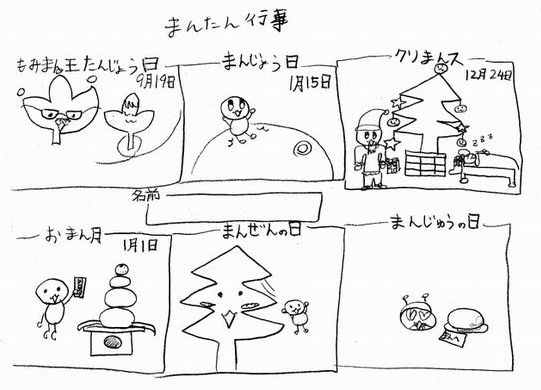 まんたん行事
もみまん王たんじょう日
9月19日
まんじょう日
1月15日
クリまんス
12月24日
zzz
名前
おまん月
1月1日
まんぜんの日
まんじゅうの日